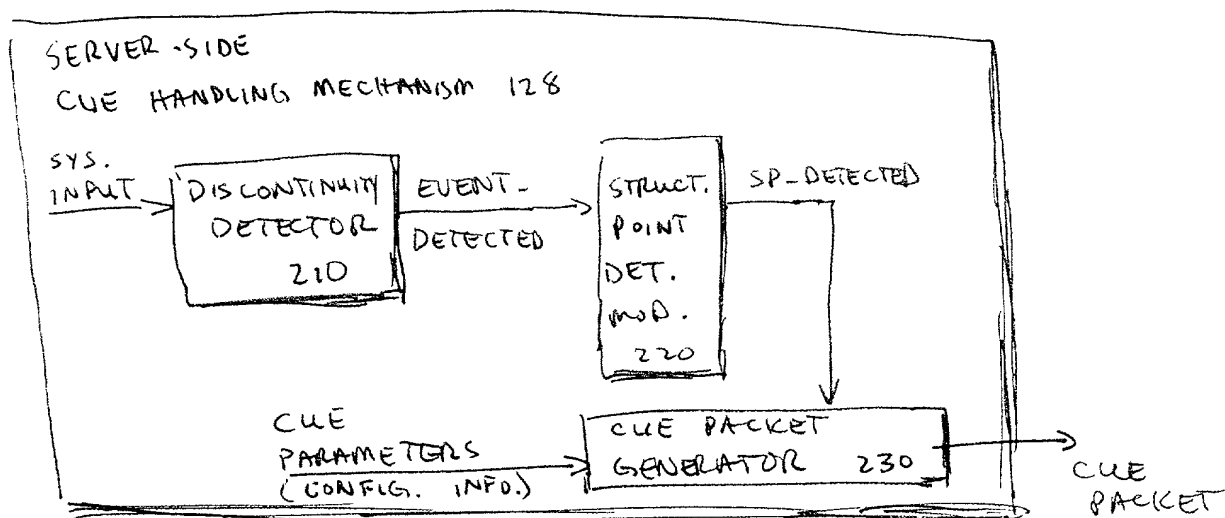 SERVER-SIDE
CUE HANDLING MECHANISM 128
SYS.
INPUT
DISCONTINUITY
DETECTOR
210
EVENT_
DETECTED
STRUCT.
POINT
DET.
MOD.
220
SP_DETECTED
CUE
PARAMETERS
(CONFIG. INFO.)
CUE PACKET
GENERATOR 230
CUE
PACKET